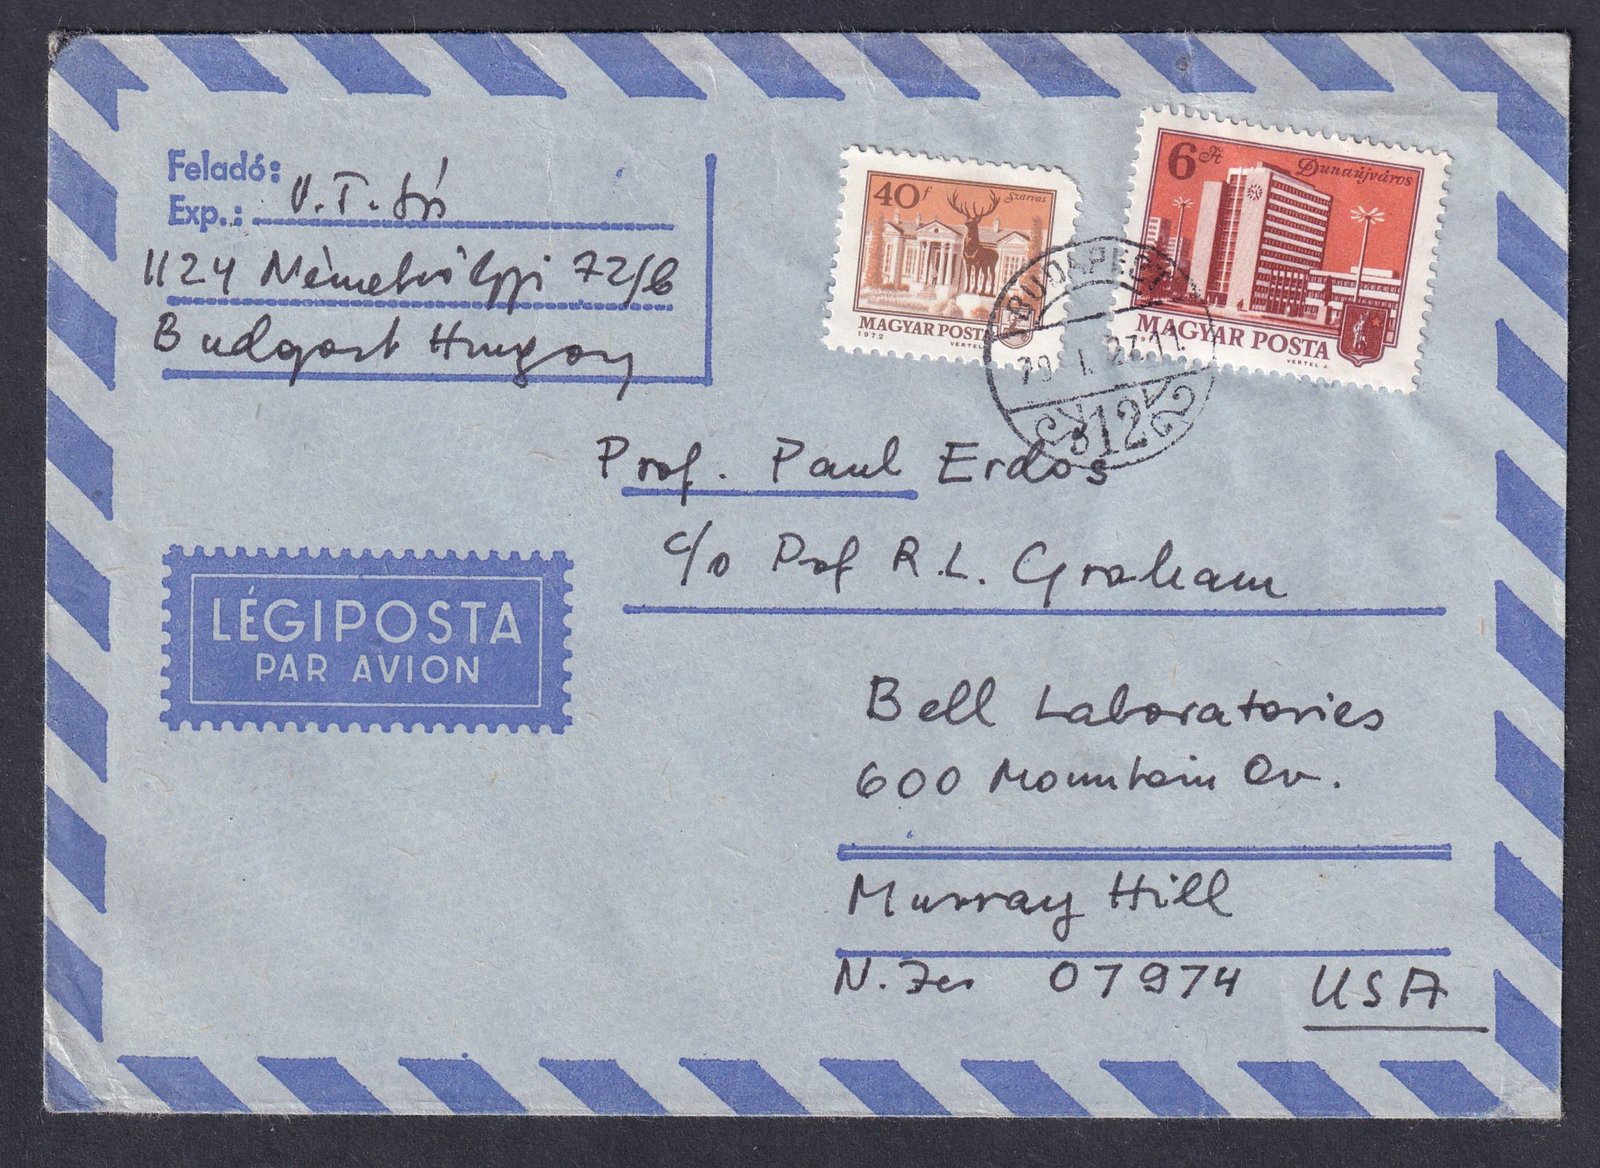 Feladó:
Exp.: V. T. Sós
1124 Németvölgyi 72/b
Budapest Hungary
40f
Szarvas
MAGYAR POSTA
1972 VERTEL J.
6 Ft
Dunaújváros
MAGYAR POSTA
VERTEL J.
BUDAPEST
79. I. 27. 11
12
Prof. Paul Erdos
c/o Prof R. L. Graham
LÉGIPOSTA
PAR AVION
Bell Laboratories
600 Mountain Av.
Murray Hill
N. Jer 07974 USA